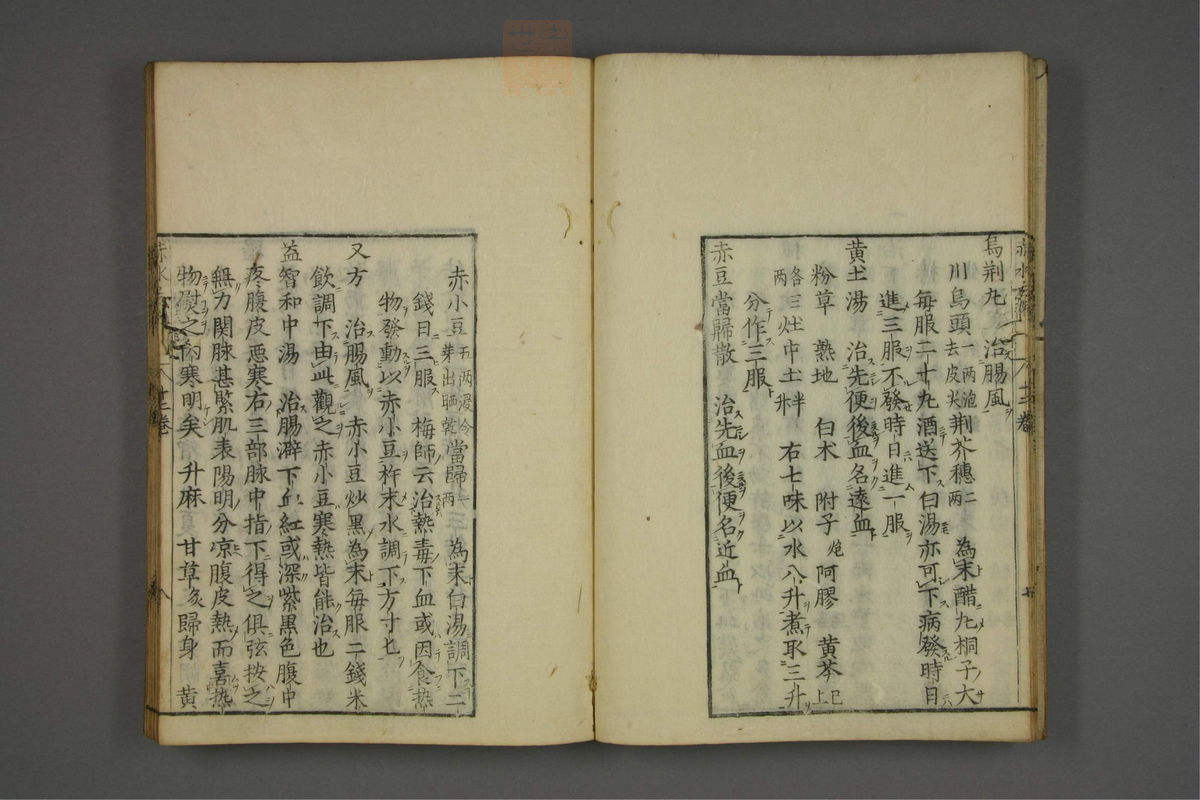 烏荆丸　治腸風
川烏頭一両泡去皮尖荆芥穗二両為末醋丸桐子大
毎服二十丸酒送下白湯亦可下病發時日
進三服不發時日進一服
黄土湯　治先便後血名遠血
粉草　熟地　白术　附子炮　阿膠　黄芩已上
各三両灶中土半升　右七味以水八升煮取三升
分作三服
赤豆當歸散　治先血後便名近血
赤小豆五両浸令芽出晒乾當歸一両為末白湯調下二
錢日三服　梅師云治熱毒下血或因食热
物發動以赤小豆杵末水調下方寸匕
又方　治腸風　赤小豆炒黒為末毎服二錢米
飲調下由此觀之赤小豆寒熱皆能治也
益智和中湯　治腸澼下血紅或深紫黒色腹中
疼腹皮悪寒右三部脉中指下得之俱弦按之
無力関脉甚緊肌表陽明分凉腹皮熱而喜热
物熨之内寒明矣　升麻　甘草炙歸身　黄